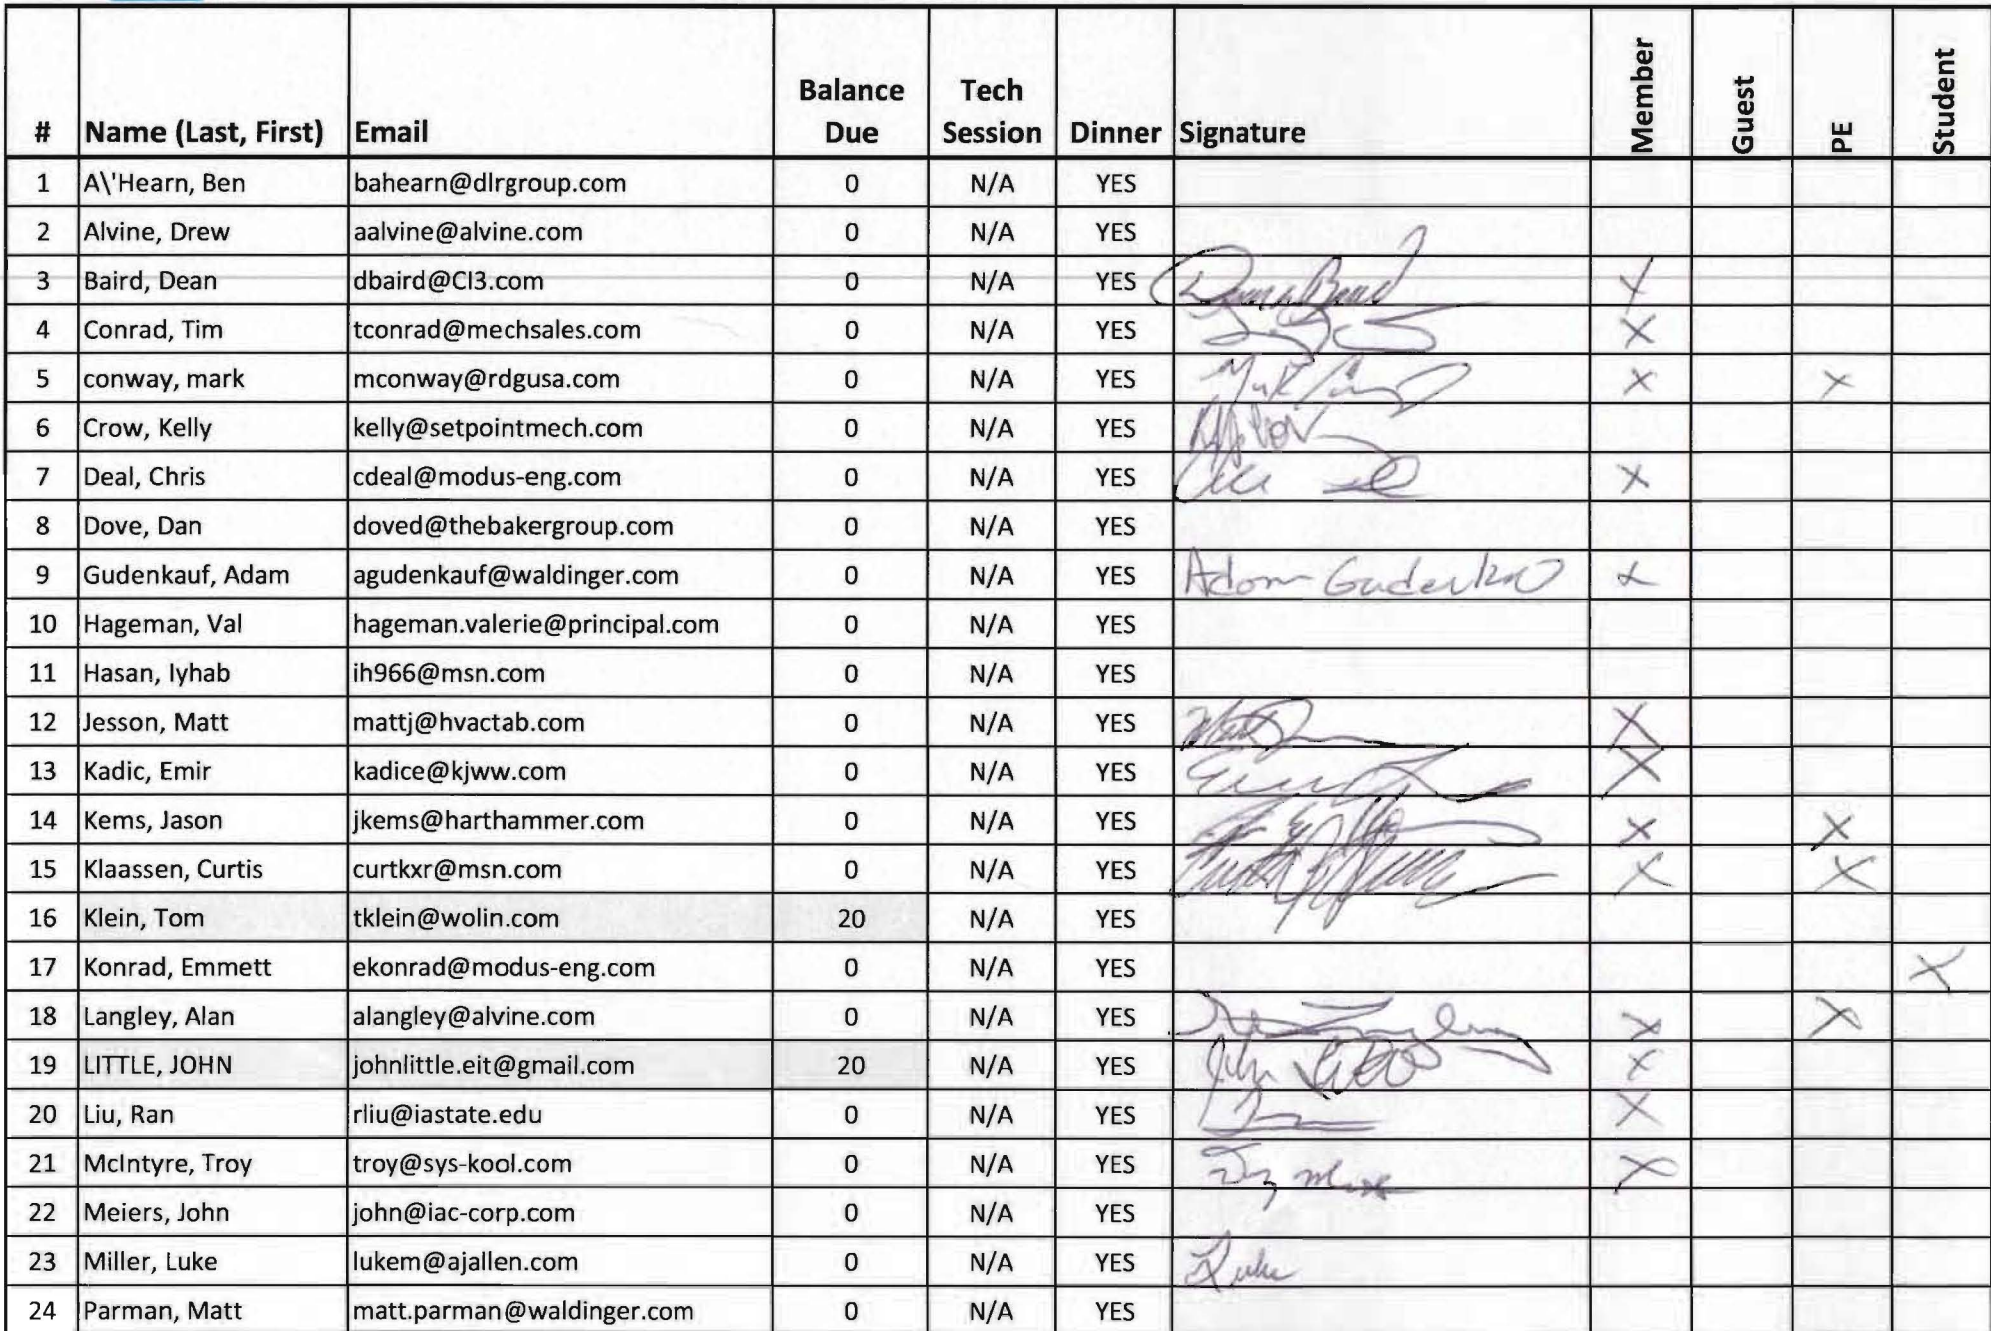 # Name (Last, First) Email Balance Due Tech Session Dinner Signature Member Guest PE Student
1 A\'Hearn, Ben bahearn@dlrgroup.com 0 N/A YES
2 Alvine, Drew aalvine@alvine.com 0 N/A YES
3 Baird, Dean dbaird@CI3.com 0 N/A YES X
4 Conrad, Tim tconrad@mechsales.com 0 N/A YES X
5 conway, mark mconway@rdgusa.com 0 N/A YES X X
6 Crow, Kelly kelly@setpointmech.com 0 N/A YES
7 Deal, Chris cdeal@modus-eng.com 0 N/A YES X
8 Dove, Dan doved@thebakergroup.com 0 N/A YES
9 Gudenkauf, Adam agudenkauf@waldinger.com 0 N/A YES Adam X
10 Hageman, Val hageman.valerie@principal.com 0 N/A YES
11 Hasan, Iyhab ih966@msn.com 0 N/A YES
12 Jesson, Matt mattj@hvactab.com 0 N/A YES X
13 Kadic, Emir kadice@kjww.com 0 N/A YES X
14 Kems, Jason jkems@harthammer.com 0 N/A YES X X
15 Klaassen, Curtis curtkxr@msn.com 0 N/A YES X X
16 Klein, Tom tklein@wolin.com 20 N/A YES
17 Konrad, Emmett ekonrad@modus-eng.com 0 N/A YES X
18 Langley, Alan alangley@alvine.com 0 N/A YES X X
19 LITTLE, JOHN johnlittle.eit@gmail.com 20 N/A YES John X
20 Liu, Ran rliu@iastate.edu 0 N/A YES X
21 McIntyre, Troy troy@sys-kool.com 0 N/A YES X
22 Meiers, John john@iac-corp.com 0 N/A YES
23 Miller, Luke lukem@ajallen.com 0 N/A YES Luke
24 Parman, Matt matt.parman@waldinger.com 0 N/A YES